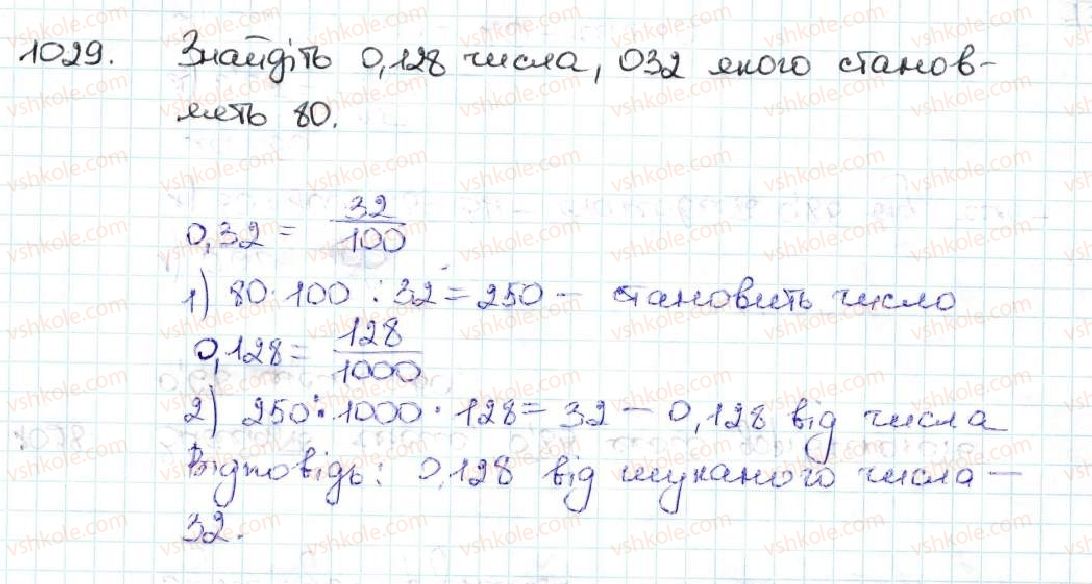 1029. Знайдіть 0,128 числа, 032 якого станов-
лять 80.
0,32 = 32/100
1) 80 · 100 : 32 = 250 - становить число
0,128 = 128/1000
2) 250 : 1000 · 128 = 32 - 0,128 від числа
Відповідь: 0,128 від шуканого числа -
32.